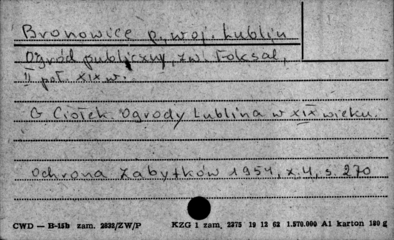 Bronowice p. woj. Lublin
Ogród publiczny, zw. Foksal,
II poł. XIX w.
G Ciołek. Ogrody Lublina w XIX wieku.
Ochrona Zabytków 1954, z. 4, s. 270
CWD — B-15b zam. 2832/ZW/P KZG 1 zam. 2375 19 12 62 1.570.000 A1 karton 180 g